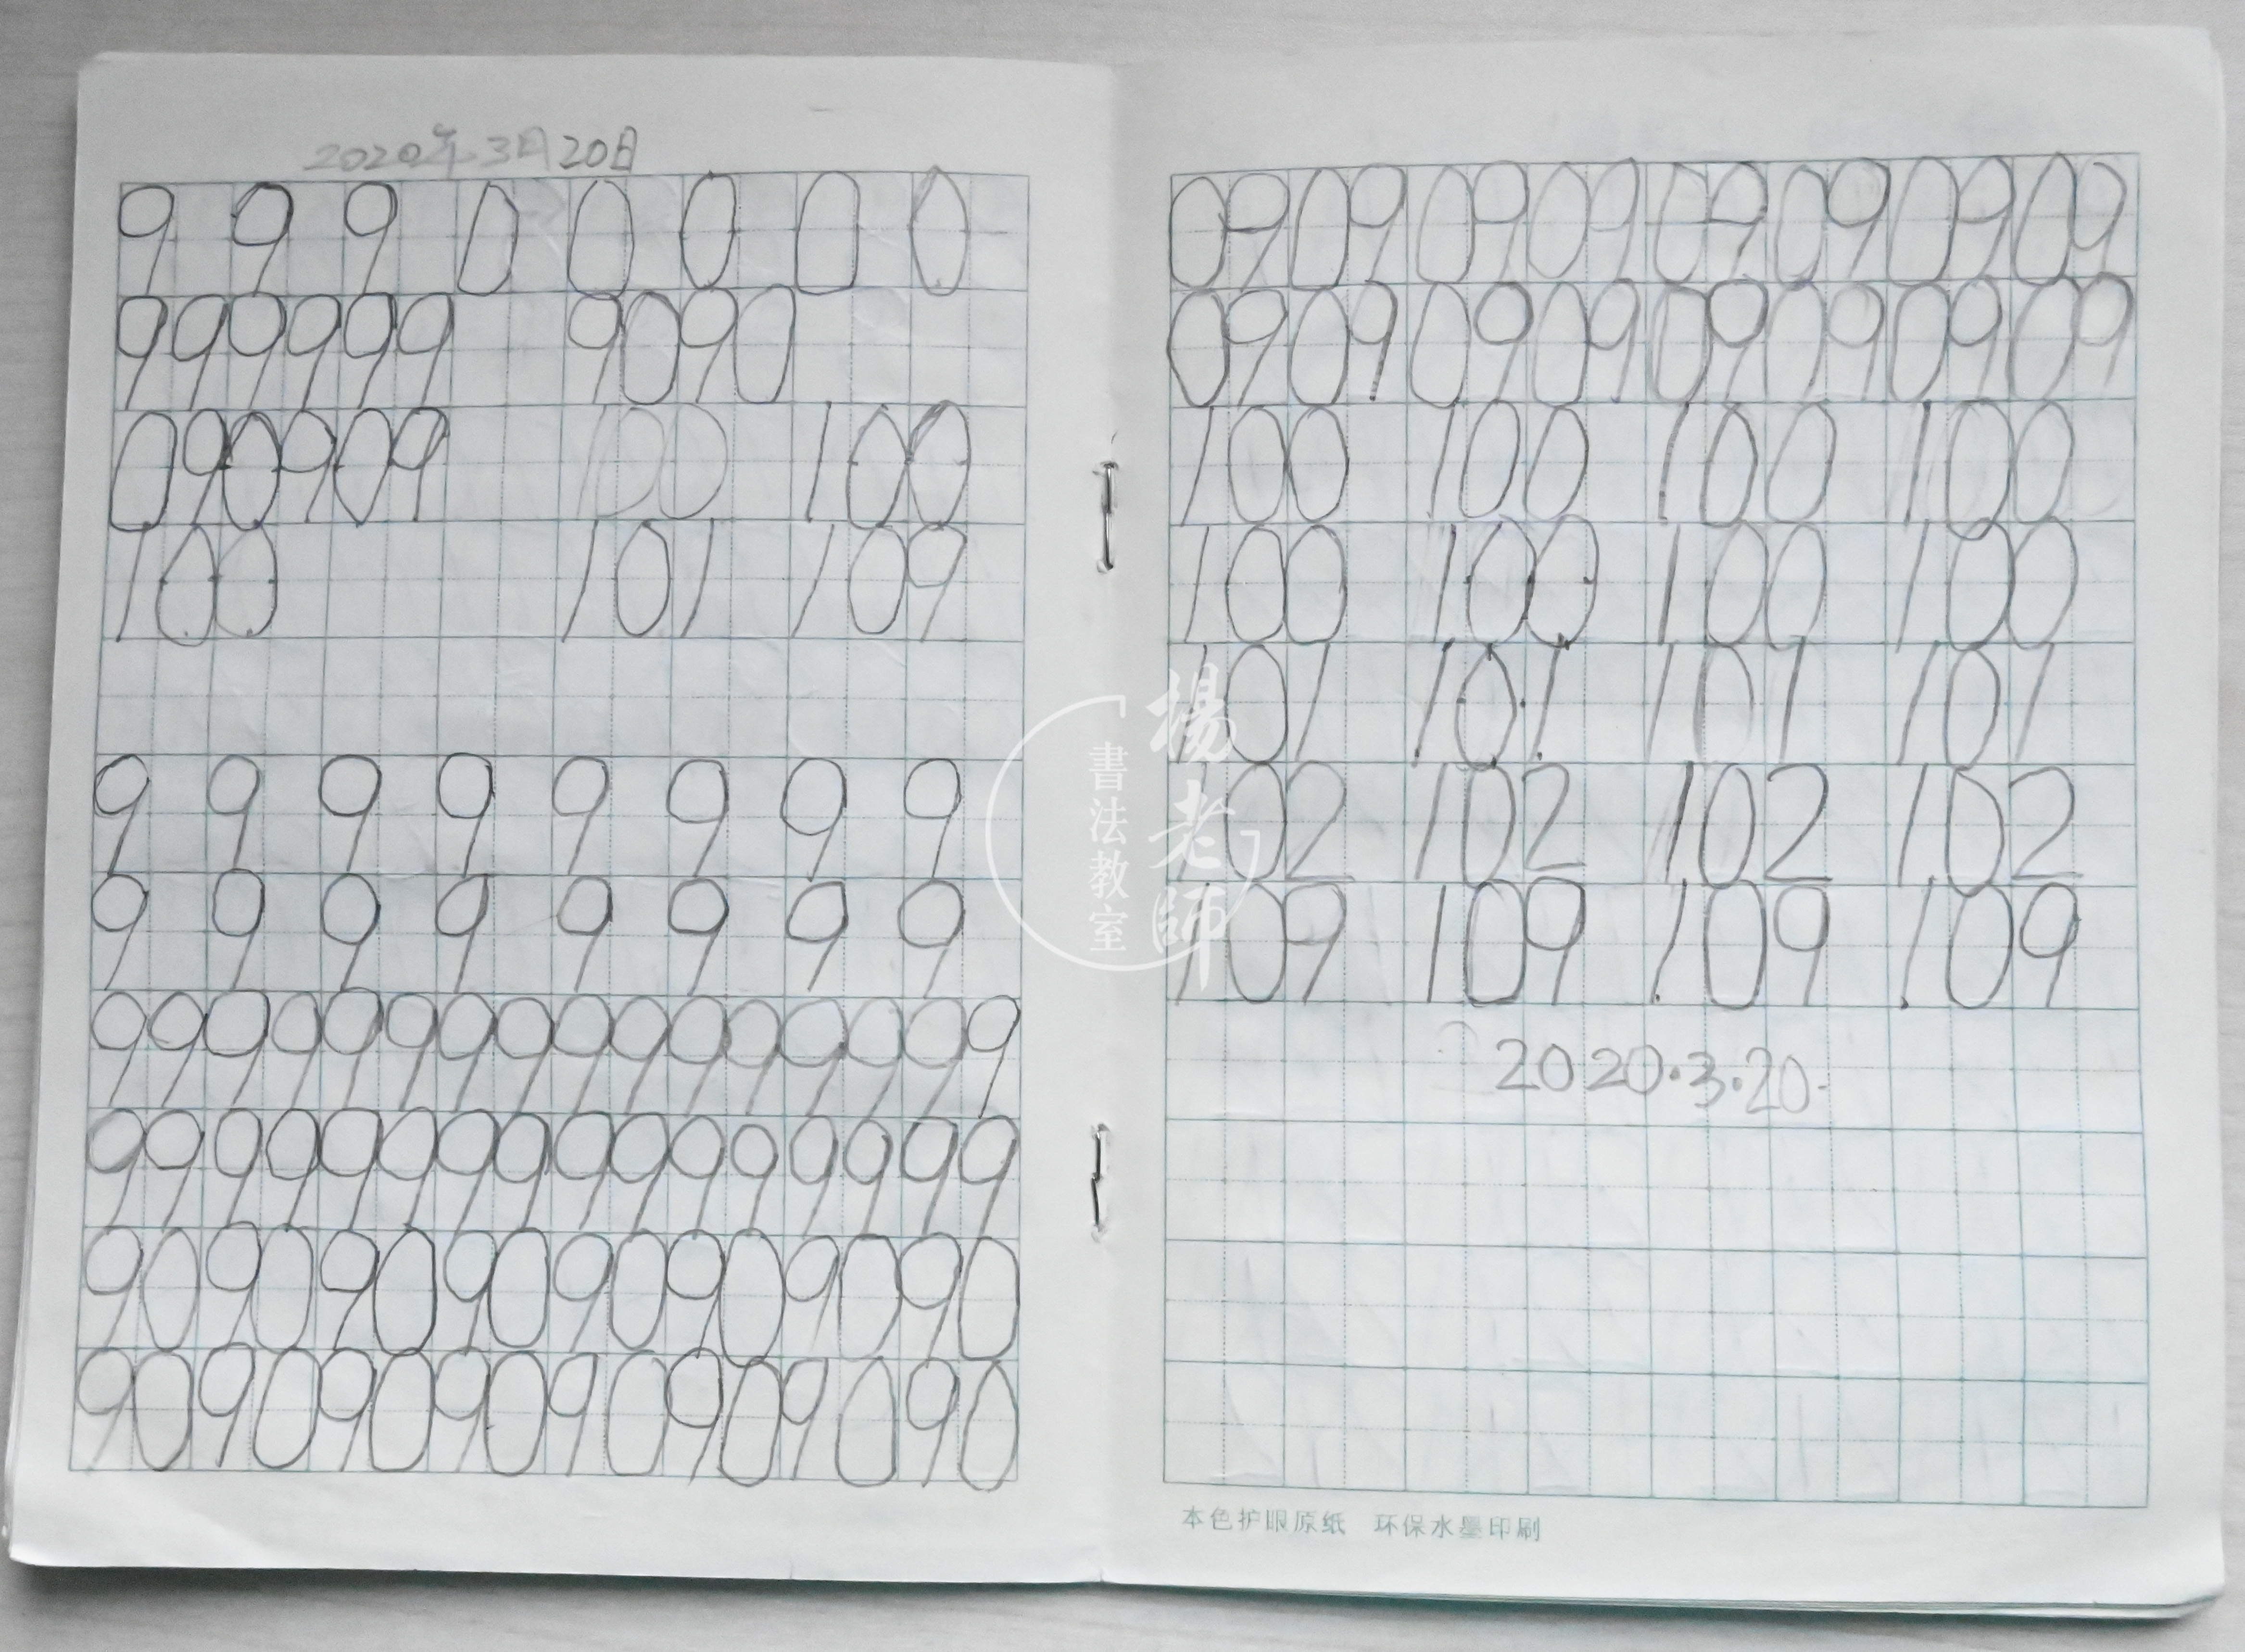 2020年3月20日
9 9 9 0 0 0 0 0
9 9 9 9 9 9 9 0 9 0
0 9 0 9 0 9 100 100
100 101 109
9 9 9 9 9 9 9 9
9 9 9 9 9 9 9 9
9 9 9 9 9 9 9 9 9 9 9 9 9 9 9 9
9 9 9 9 9 9 9 9 9 9 9 9 9 9 9 9
9 0 9 0 9 0 9 0 9 0 9 0 9 0 9 0
9 0 9 0 9 0 9 0 9 0 9 0 9 0 9 0
0 9 0 9 0 9 0 9 0 9 0 9 0 9 0 9
0 9 0 9 0 9 0 9 0 9 0 9 0 9 0 9
100 100 100 100
100 100 100 100
101 101 101 101
102 102 102 102
109 109 109 109
2020.3.20.
本色护眼原纸 环保水墨印刷
楊老師
書法教室